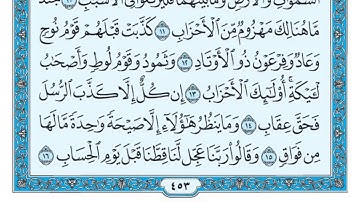 مَّا هُنَالِكَ مَهْزُومٌ مِّنَ ٱلْأَحْزَابِ ١١ كَذَّبَتْ قَبْلَهُمْ قَوْمُ نُوحٍ
وَعَادٌ وَفِرْعَوْنُ ذُو ٱلْأَوْتَادِ ١٢ وَثَمُودُ وَقَوْمُ لُوطٍ وَأَصْحَٰبُ
لْـَٔيْكَةِ ۚ أُو۟لَٰٓئِكَ ٱلْأَحْزَابُ ١٣ إِن كُلٌّ إِلَّا كَذَّبَ ٱلرُّسُلَ
فَحَقَّ عِقَابِ ١٤ وَمَا يَنظُرُ هَٰٓؤُلَآءِ إِلَّا صَيْحَةً وَٰحِدَةً مَّا لَهَا
مِن فَوَاقٍ ١٥ وَقَالُوا۟ رَبَّنَا عَجِّل لَّنَا قِطَّنَا قَبْلَ يَوْمِ ٱلْحِسَابِ ١٦
٤٥٣